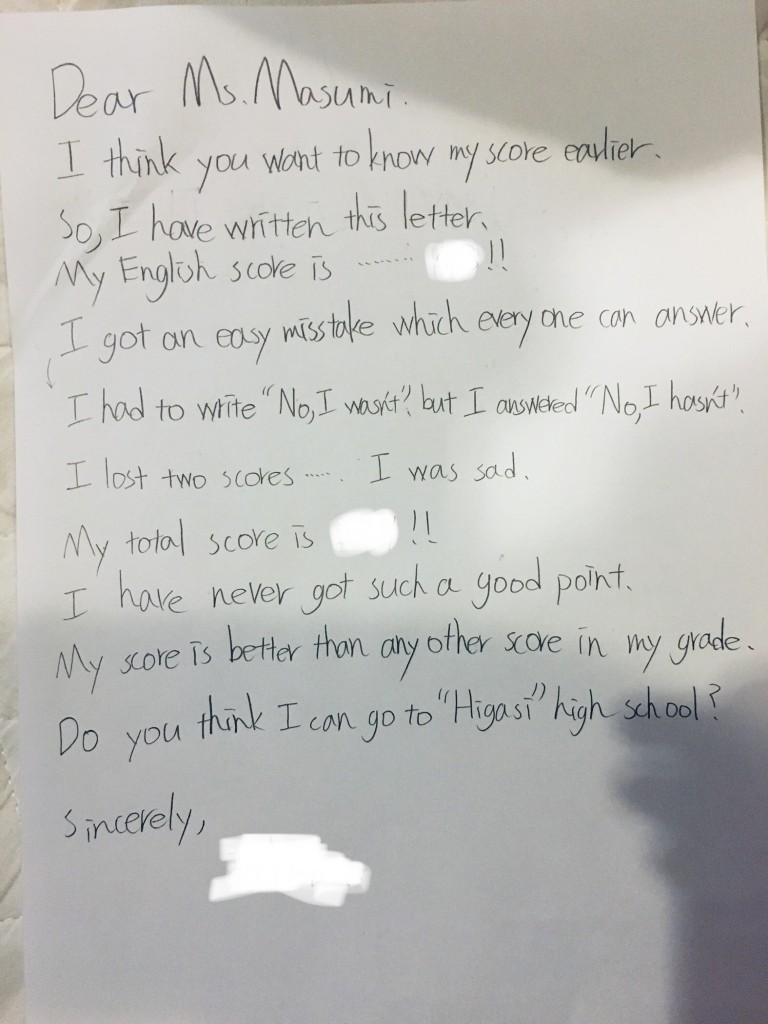 Dear Ms. Masumi.
I think you want to know my score earlier.
So, I have written this letter.
My English score is ........ !!
I got an easy misstake which every one can answer.
I had to write "No, I wasn't", but I answered "No, I hasn't".
I lost two scores ..... I was sad.
My total score is !!
I have never got such a good point.
My score is better than any other score in my grade.
Do you think I can go to "Higasi" high school?
Sincerely,